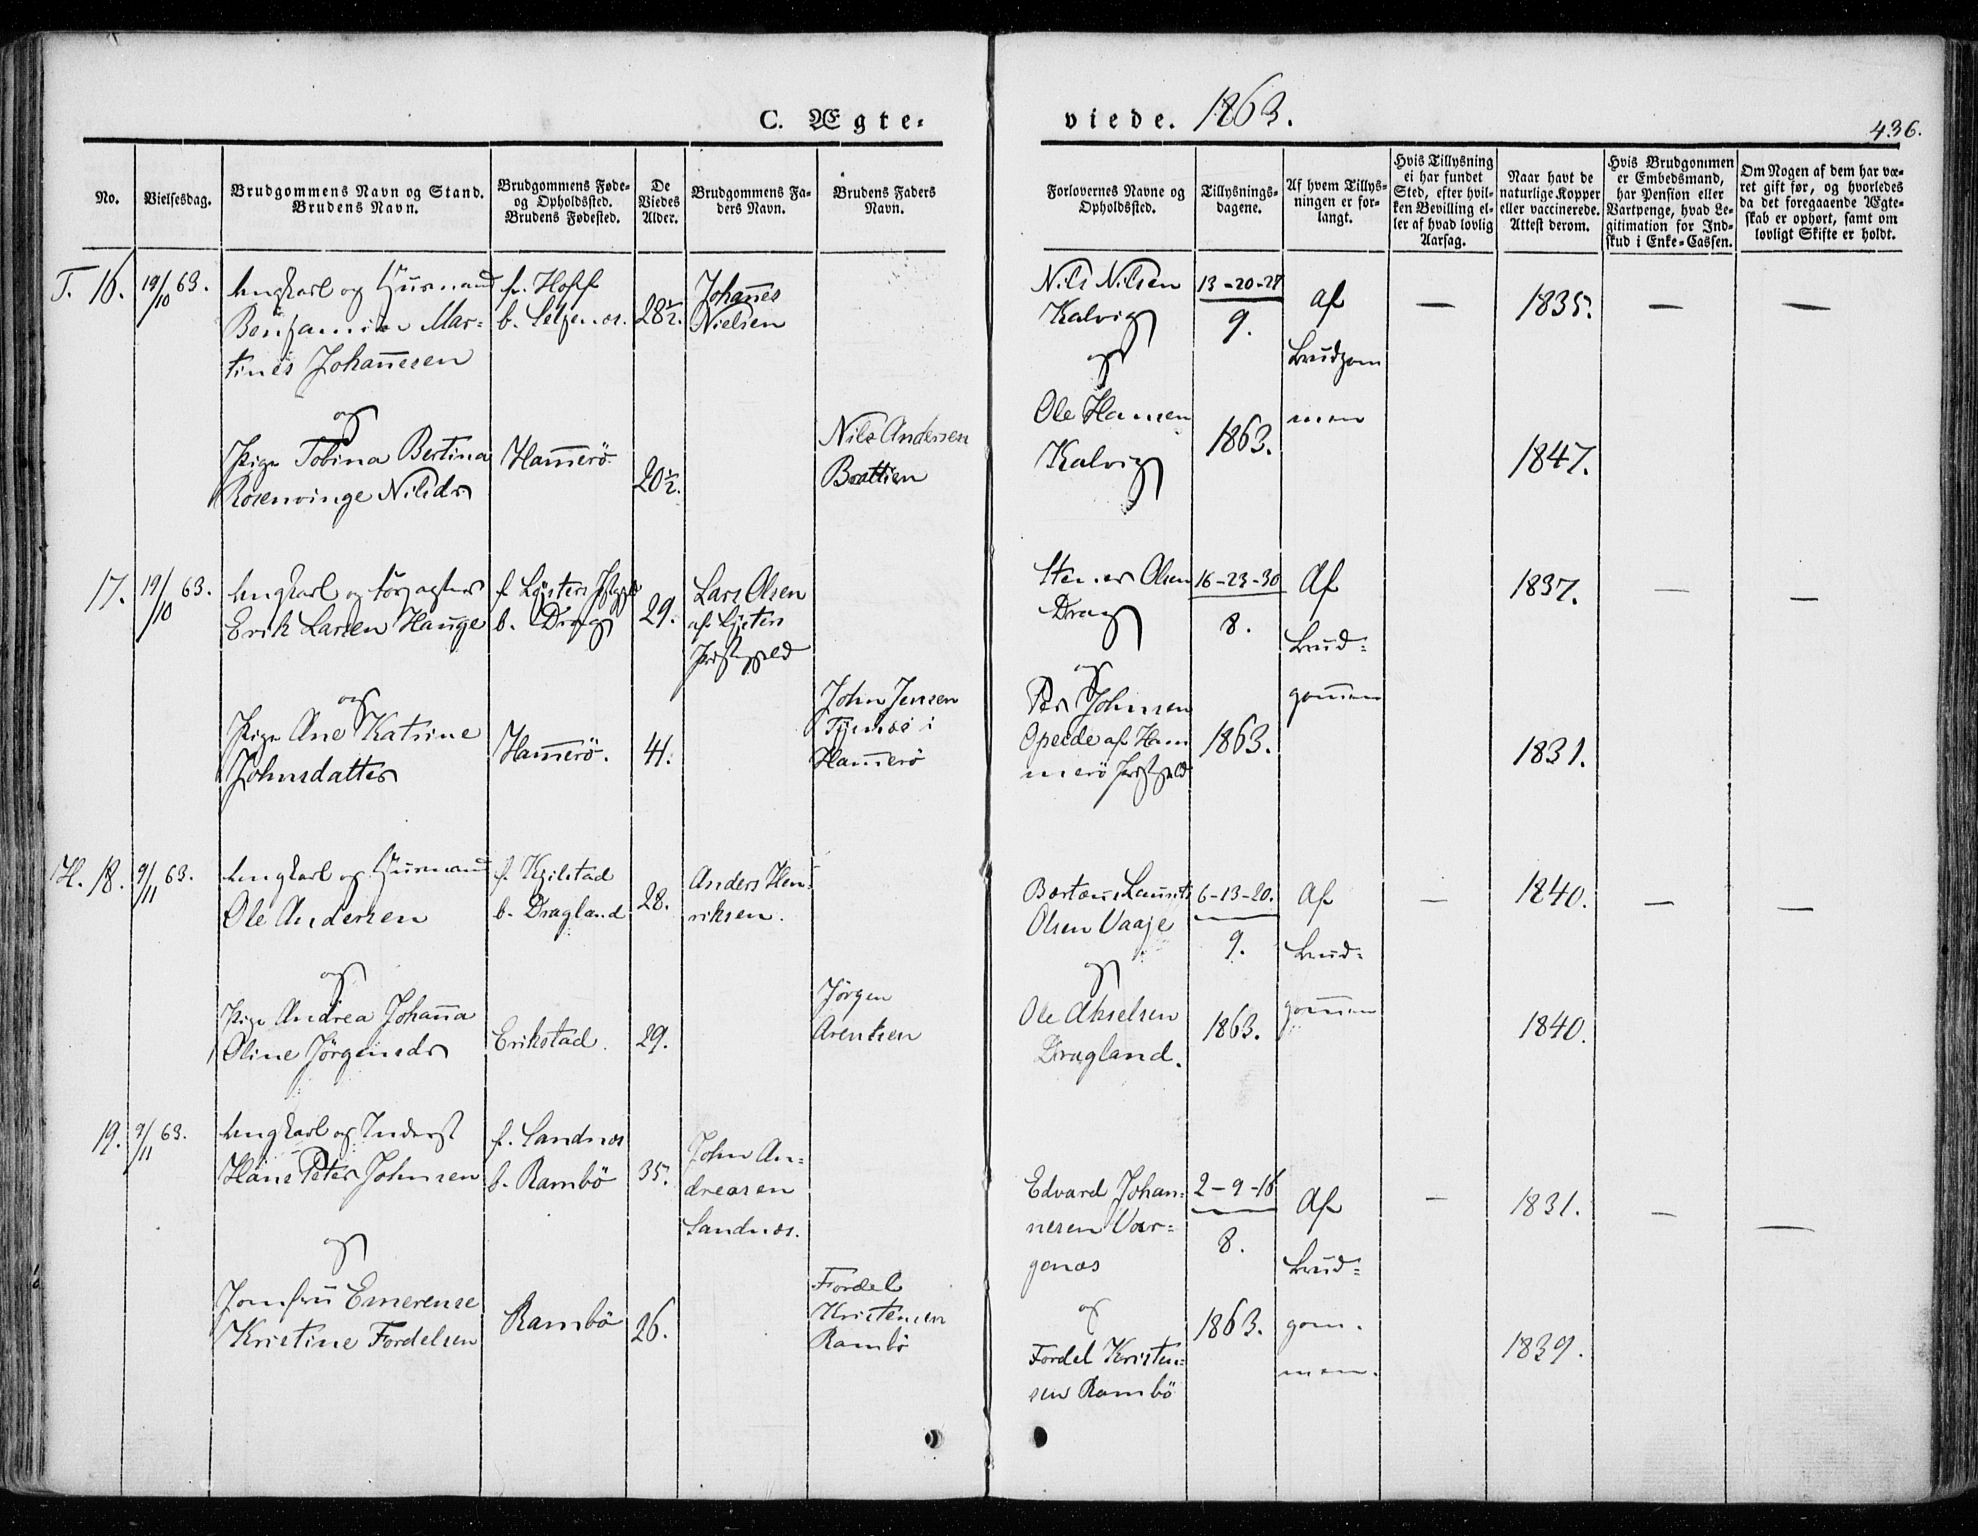 C. Ægte-
viede. 1863.
436.
No.
Vielsesdag.
Brudgommens Navn og Stand.
Brudens Navn.
Brudgommens Føde-
og Opholdssted.
Brudens Fødested.
De
Viedes
Alder.
Brudgommens Fa-
ders Navn.
Brudens Faders
Navn.
Forlovernes Navne og
Opholdssted.
Tillysnings-
dagene.
Af hvem Tillys-
ningen er for-
langt.
Hvis Tillysning
ei har fundet
Sted, efter hvil-
ken Bevilling el-
ler af hvad lovlig
Aarsag.
Naar havt de
naturlige Kopper
eller vaccinerede.
Attest derom.
Hvis Brudgommen
er Embedsmand,
har Pension eller
Vartpenge, hvad Le-
gitimation for Ind-
skud i Enke-Cassen.
Om Nogen af dem har væ-
ret gift før, og hvorledes
da det foregaaende Ægte-
skab er ophørt, samt om
lovligt Skifte er holdt.
T. 16.
19/10 63.
Ungkarl og Huusmand
Benjamin Mar-
tines Johannesen
og
Pige Tobina Bertina
Rosenvinge Nilsdr
f. Hoff
b.
Hamerö
28½.
20½.
Johannes
Nielsen
Nils Andersen
Brattlien
Nils Nilsen
Kalvig
og
Ole Hansen
Kalvig
13-20-27
9.
1863.
af
brudgom
men
—
1835.
1847.
—
—
17.
19/10 63.
Ungkarl og
Erik Larsen Hauge
og
Pige Ane Katrine
Johnsdatter
f. Lyster
b. Drag
Hamerö.
29.
41.
Lars Olsen
af Lyster
Præstegjeld
John Jensen
i
Hamerö
Olsen
Drag
og
Per Johnsen
Opeide af Ham
merö Præstgjeld
16-23-30
8.
1863.
Af
brud-
gommen
1837.
1831.
—
—
H. 18.
9/11 63.
Ungkarl og Huusmand
Ole Andersen
og
Pige Andrea Johanna
Oline Jörgensdr
f.
b. Dragland
Erikstad.
28.
29.
Anders Hen-
riksen.
Jörgen
Arentsen
Laurits
Olsen Vaaje
og
Ole Akselsen
Dragland.
6-13-20.
9.
1863.
Af
brud-
gommen
—
1840.
1840.
—
—
19.
9/11 63.
Ungkarl og Inderst
Hans Peter Johnsen
og
Jomfru Emerense
Kristine Fordelsen
f. Sandnæs
b. Rambö
Rambö
35.
26.
John An-
dreasen
Sandnæs.
Fordel
Kristensen
Rambö
Edvard Johan-
nesen Var-
genæs
og
Fordel Kristen-
sen Rambö
2-9-16
8.
1863.
Af
brud-
gom-
men.
—
1831.
1839.
—
—